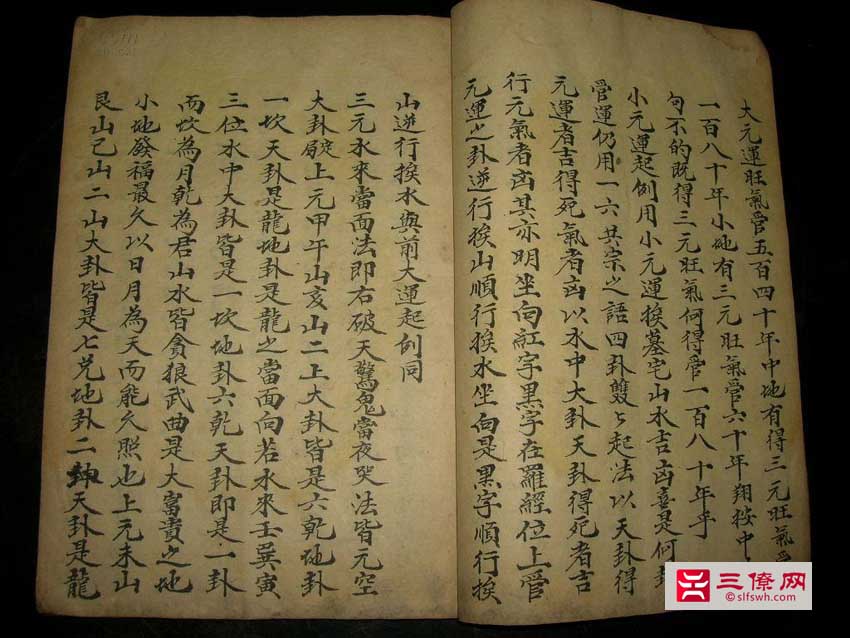 大元運旺氣管五百四十年中地有得三元旺氣管
一百八十年小地有三元旺氣管六十年翔按中
句不的既得三元旺氣何得管一百八十年乎
小元運起例用小元運挨墓宅山水吉凶喜是何卦
管運仍用一六共宗之語四卦雙々起法以天卦得
元運者吉得死氣者凶以水中大卦天卦得死者吉
行元氣者凶其亦明坐向紅字黑字在羅經位上管
元運之卦逆行挨山順行挨水坐向是黑字順行挨
山逆行挨水與前大運起例同
三元水來當面法即右破天驚鬼當夜哭法皆元空
大卦破上元甲午山亥山二上大卦皆是六乾地卦
一坎天卦是龍地卦是龍之當面向若水來壬巽寅
三位水中大卦皆是一坎地卦六乾天卦即是一卦
而坎為月乾為君山水皆貪狼武曲是大富貴之地
小地發福最久以日月為天而能久照也上元未山
艮山己山二山大卦皆是七兌地卦二坤天卦是龍
三僚网
©slfswh.com